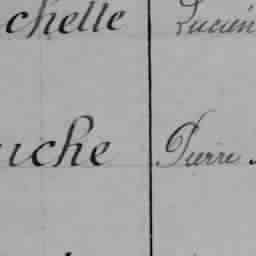 chette Lucien
uche Pierre